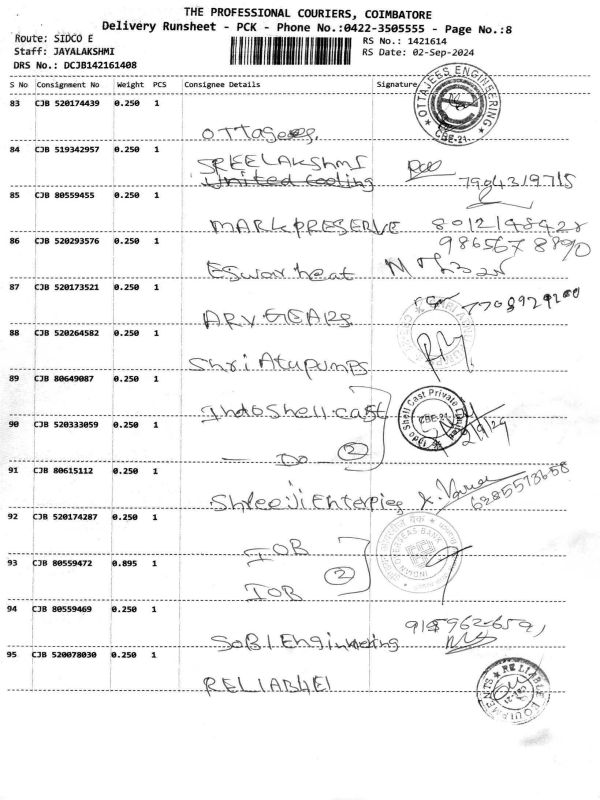 THE PROFESSIONAL COURIERS, COIMBATORE
Delivery Runsheet - PCK - Phone No.:0422-3505555 - Page No.:8
Route: SIDCO E
RS No.: 1421614
Staff: JAYALAKSHMI
RS Date: 02-Sep-2024
DRS No.: DCJB142161408
S No Consignment No Weight PCS Consignee Details Signature
83 CJB 520174439 0.250 1
OTTAJEES ENGINEERING
CBE-21.
OTTAJees.
84 CJB 519342957 0.250 1
SREELAKSHMI
United Cooling
7904319715
85 CJB 80559455 0.250 1
MARK PRESERVE
86 CJB 520293576 0.250 1
9865678890
Eswar heat
87 CJB 520173521 0.250 1
ARV GEARS
88 CJB 520264582 0.250 1
Shri Atupumps
89 CJB 80649087 0.250 1
Indoshell cast
Indo Shell Cast Private Limited
CBE-21
2/9/24
90 CJB 520333059 0.250 1
Do 2
91 CJB 80615112 0.250 1
Shreeji Enterpies
6285573658
92 CJB 520174287 0.250 1
IOB
INDIAN OVERSEAS BANK
93 CJB 80559472 0.895 1
IOB 2
94 CJB 80559469 0.250 1
SOBI Engineering
95 CJB 520078030 0.250 1
RELIABLE
RELIABLE EQUIPMENTS